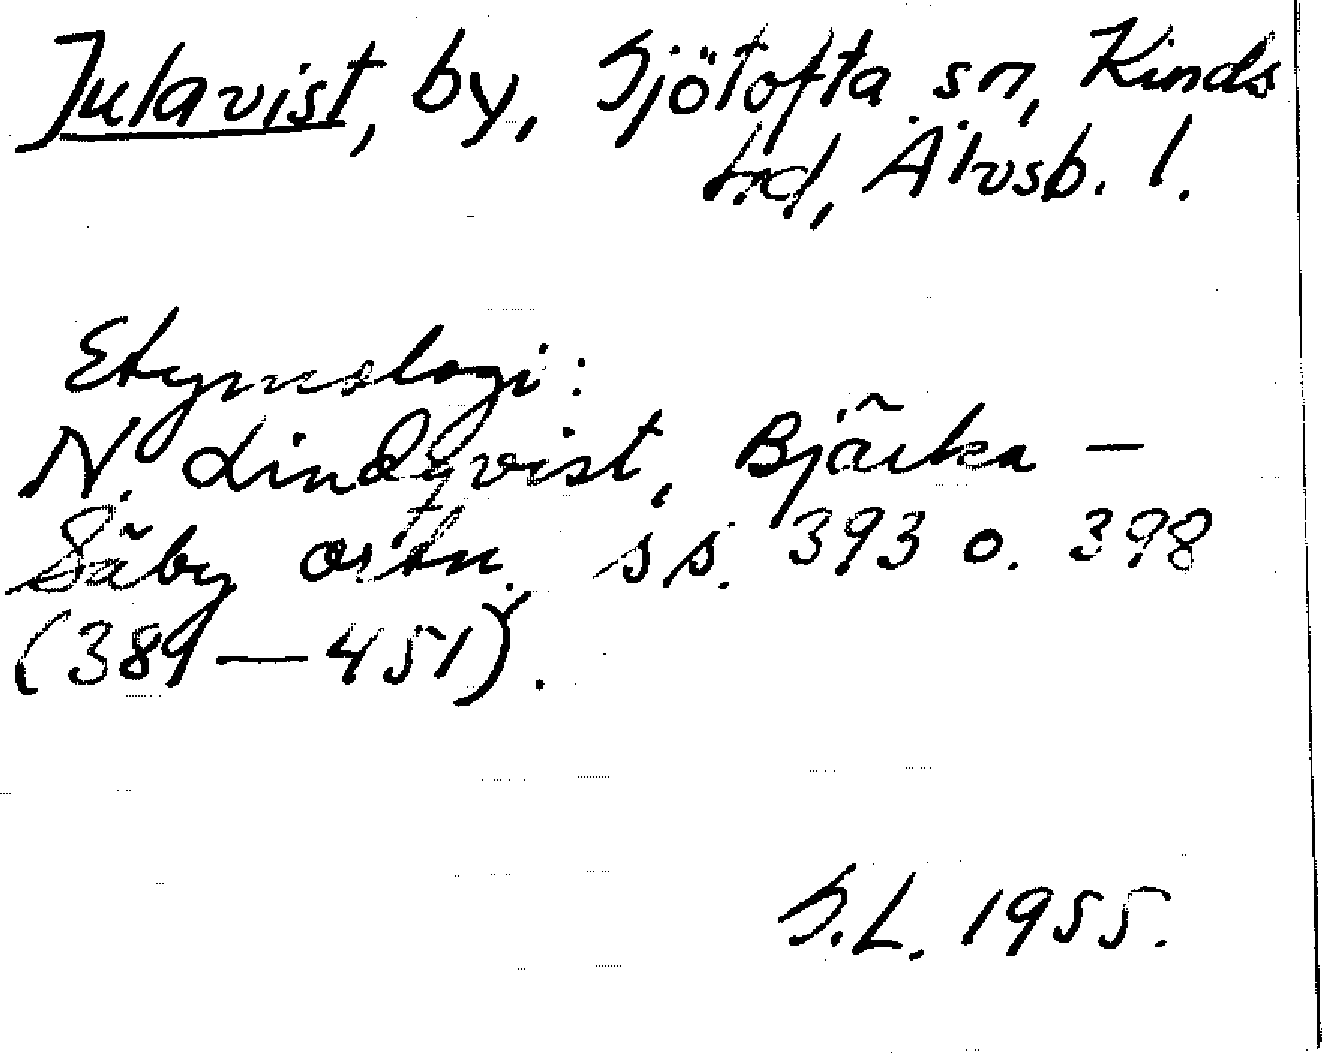 Julavist, by, Sjötofta sn, Kinds
hd, Älvsb. l.
Etymologi:
N. Lindqvist, Bjärka-
Säby ortn. ss. 393 o. 398
(389-451).
S.L. 1955.